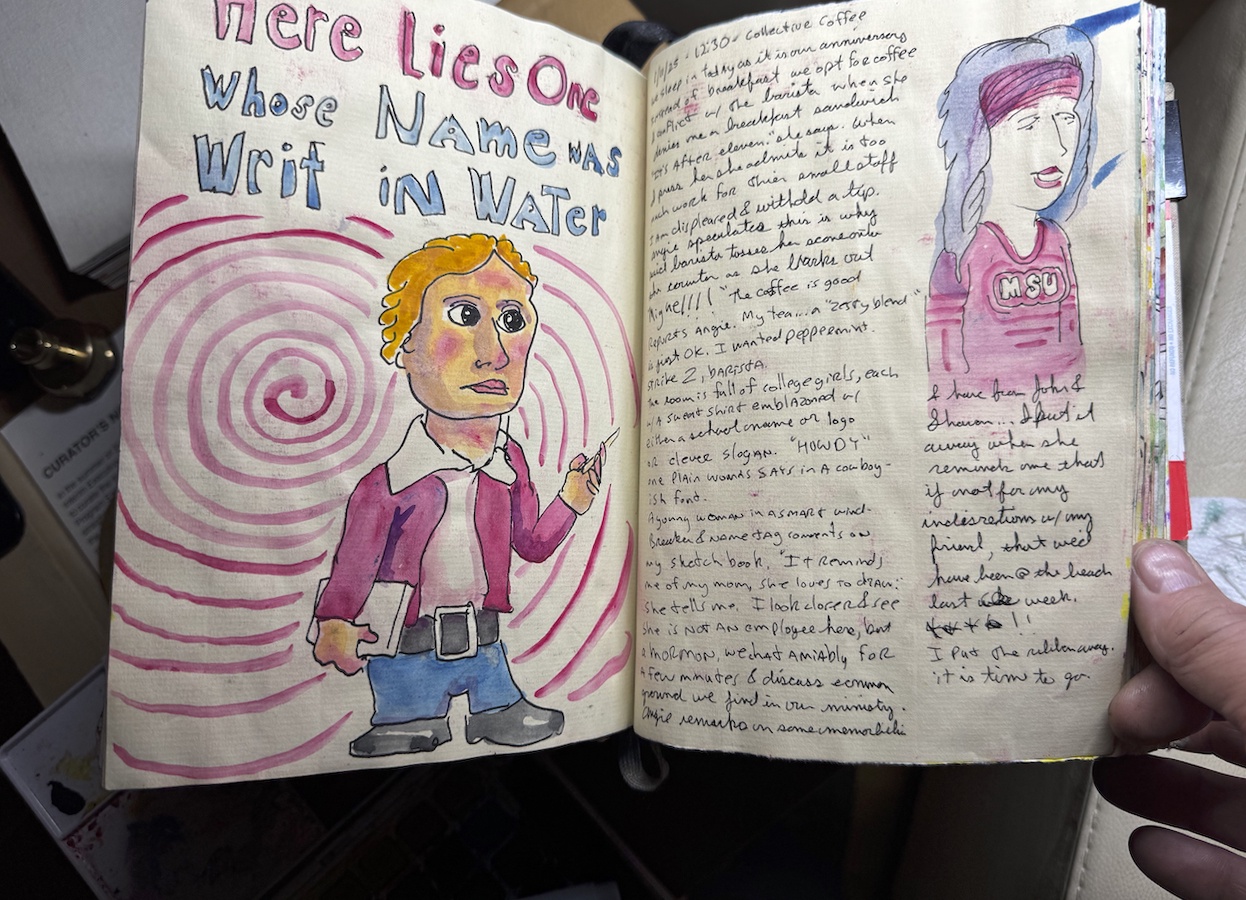 Here Lies One
Whose Name was
Writ in Water
1/11/25 - 12:30 - Collective Coffee
sleep in today as it is our anniversary
instead of breakfast we opt for coffee
conflict w/ the barista when she
denies me a breakfast sandwich
"it's After eleven." she says. When
I press her she admits it is too
much work for their small staff
I am displeased & withold a tip.
Angie speculates this is why
said barista tosses her scone onto
the counter as she barks out
"The coffee is good"
reports Angie. My tea... a "zesty blend"
is just OK. I wanted Peppermint.
strike 2, barista.
The room is full of college girls, each
w/ A sweat shirt emblazoned w/
either a school name or logo
or clever slogan. "HOWDY"
one plain woman's SAYS in A cowboy-
ish font.
A young woman in a smart wind-
Breaker & name tag comments on
my sketchbook. "It Reminds
me of my mom, she loves to draw."
She tells me. I look closer & see
she is NOT AN employee here, but
a MORMON, we chat Amiably for
A few minutes & discuss common
ground we find in our ministry.
Angie remarks on some memorbilia
MSU
I have from John &
Sharon... I put it
away when she
reminds me that
if not for my
indiscretions w/ my
friend, that we'd
have been @ the beach
last week.
!!
I put the ribbon away.
it is time to go.
CURATOR'S